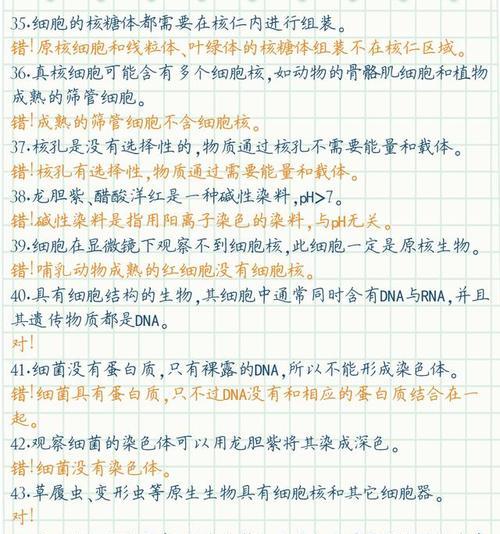 35.细胞的核糖体都需要在核仁内进行组装。
错!原核细胞和线粒体、叶绿体的核糖体组装不在核仁区域。
36.真核细胞可能含有多个细胞核,如动物的骨骼肌细胞和植物
成熟的筛管细胞。
错!成熟的筛管细胞不含细胞核。
37.核孔是没有选择性的,物质通过核孔不需要能量和载体。
错!核孔有选择性,物质通过需要能量和载体。
38.龙胆紫、醋酸洋红是一种碱性染料,pH>7。
错!碱性染料是指用阳离子染色的染料,与pH无关。
39.细胞在显微镜下观察不到细胞核,此细胞一定是原核生物。
错!哺乳动物成熟的红细胞没有细胞核。
40.具有细胞结构的生物,其细胞中通常同时含有DNA与RNA,并且
其遗传物质都是DNA。
对!
41.细菌没有蛋白质,只有裸露的DNA,所以不能形成染色体。
错!细菌具有蛋白质,只不过DNA没有和相应的蛋白质结合在一
起。
42.观察细菌的染色体可以用龙胆紫将其染成深色。
错!细菌没有染色体。
43.草履虫、变形虫等原生生物具有细胞核和其它细胞器。
对!